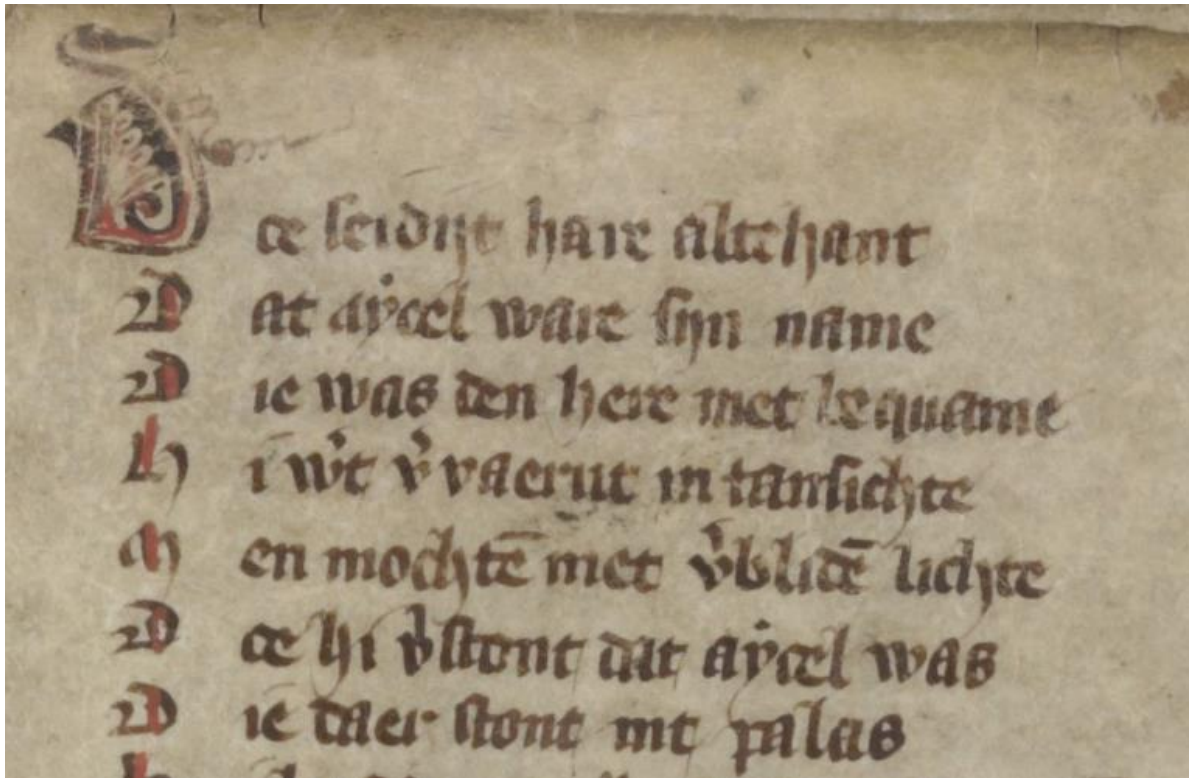 Doe seidijt hare altehant
Dat aẏoel ware sijn name
Die was den here met bequame
hi w̓t v̓vaerut in tansichte
Men mochtē met v̓blidē lichte
Doe hi v̓stont dat aẏoel was
Die daer stont int palas